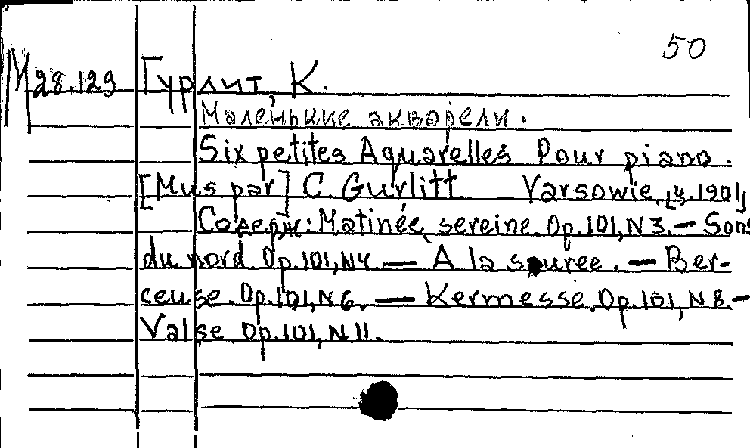 50
М 28.129 Гурлит, К.
Маленькие акварели.
Six petites Aquarelles Pour piano.
[Mus par] C. Gurlitt Varsowie, [4.1901]
Содерж: Matinée sereine. Op.101, N3. — Sons
du nord. Op.101, N4. — A la source. — Ber-
ceuse. Op.101, N6. — Kermesse. Op.101, N8. —
Valse Op.101, N11.